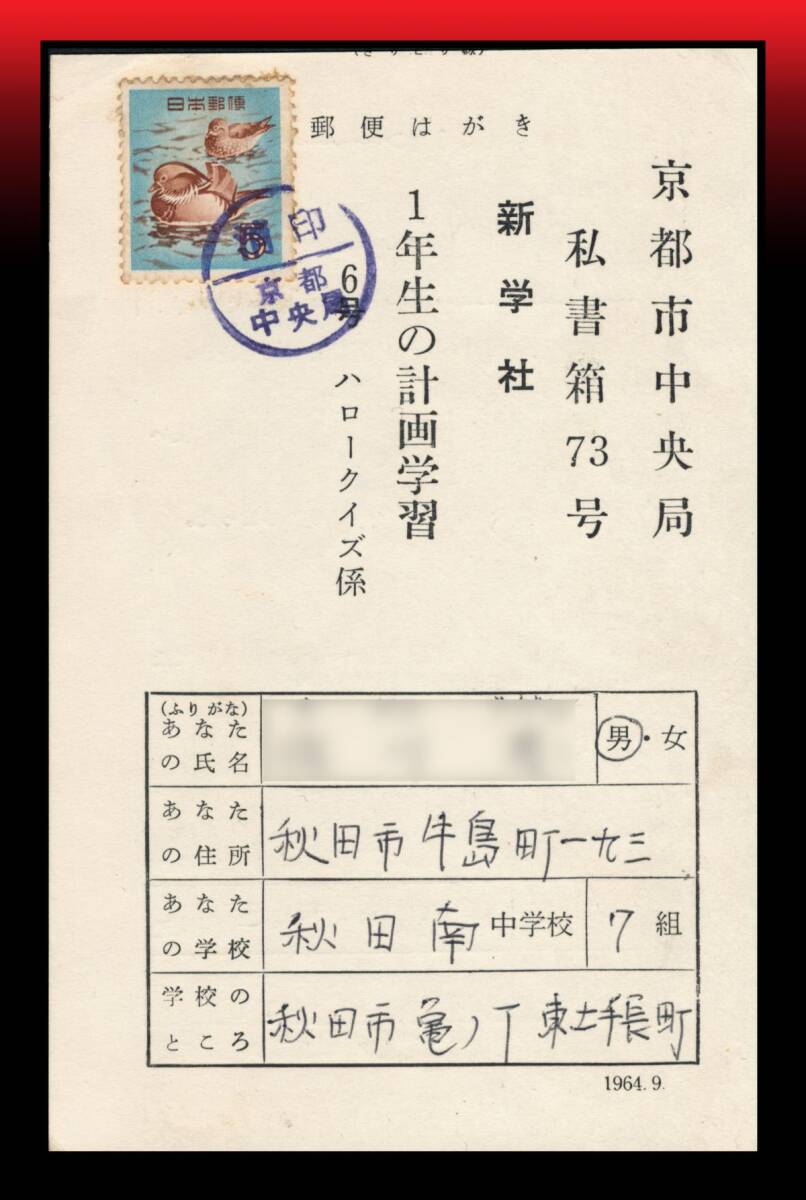 日本郵便
5
郵便はがき
京都市中央局
私書箱73号
新学社
1年生の計画学習
6号
ハロークイズ係
印
京都
中央局
(ふりがな)
あなた
の氏名
男・女
あなた
の住所
秋田市牛島町一九三
あなた
の学校
秋田南中学校
7組
学校の
ところ
秋田市亀ノ丁東土手長町
1964.9.